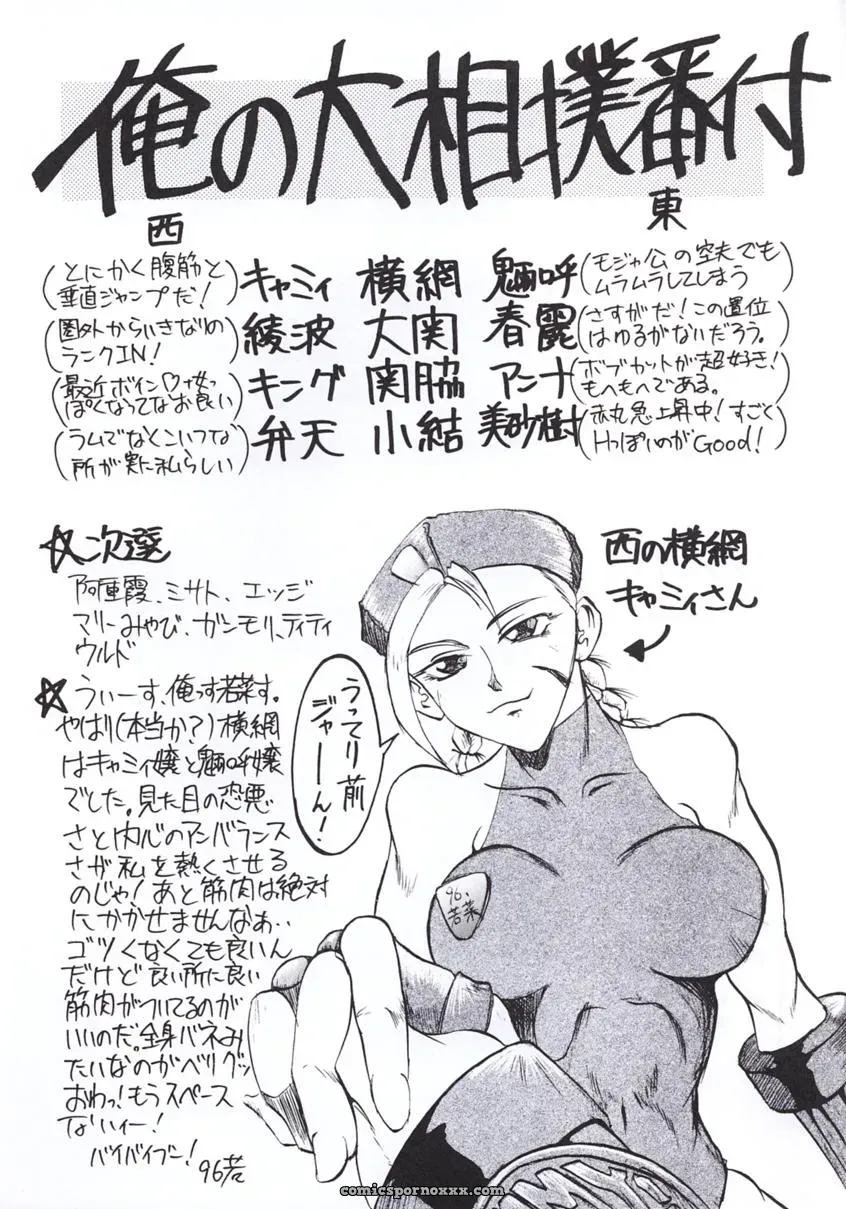 俺の大相撲番付
東
西
(とにかく腹筋と
垂直ジャンプだ!)
キャミィ 横綱 魎呼
(モジャ公の空夫でも
ムラムラしてしまう)
(圏外からいきなりの
ランクIN!)
綾波 大関 春麗
(さすがだ!この置位
はゆるがないだろう。)
(最近ボイン♡女っ
ぽくなってなお良い)
キング 関脇 アンナ
(ボブカットが超好き!
もへもへである。)
(ラムでなくこいつな
所が実に私らしい)
弁天 小結 美砂樹
(赤丸急上昇中!すごく
Hっぽいのが Good!)
☆次選
阿重霞、ミサト、エッジ
マリーみやび、ガンモリ、ティティ
ウルド
西の横綱
キャミィさん
☆うぃーす、俺っす若菜す。
やはり(本当か?)横綱
はキャミィ嬢と魎呼嬢
でした。見た目の恐悪
さと内心のアンバランス
さが私を熱くさせる
のじゃ!あと筋肉は絶対
にかかせませんなぁ‥
ゴツくなくても良いん
だけど良い所に良い
筋肉がついてるのが
いいのだ。全身バネみ
たいなのがベリグッ
おわっ!もうスペース
ないィー!
バイバイブー!
96若
うってり前
ジャーーん!
96.
若菜
comicspornoxxx.com